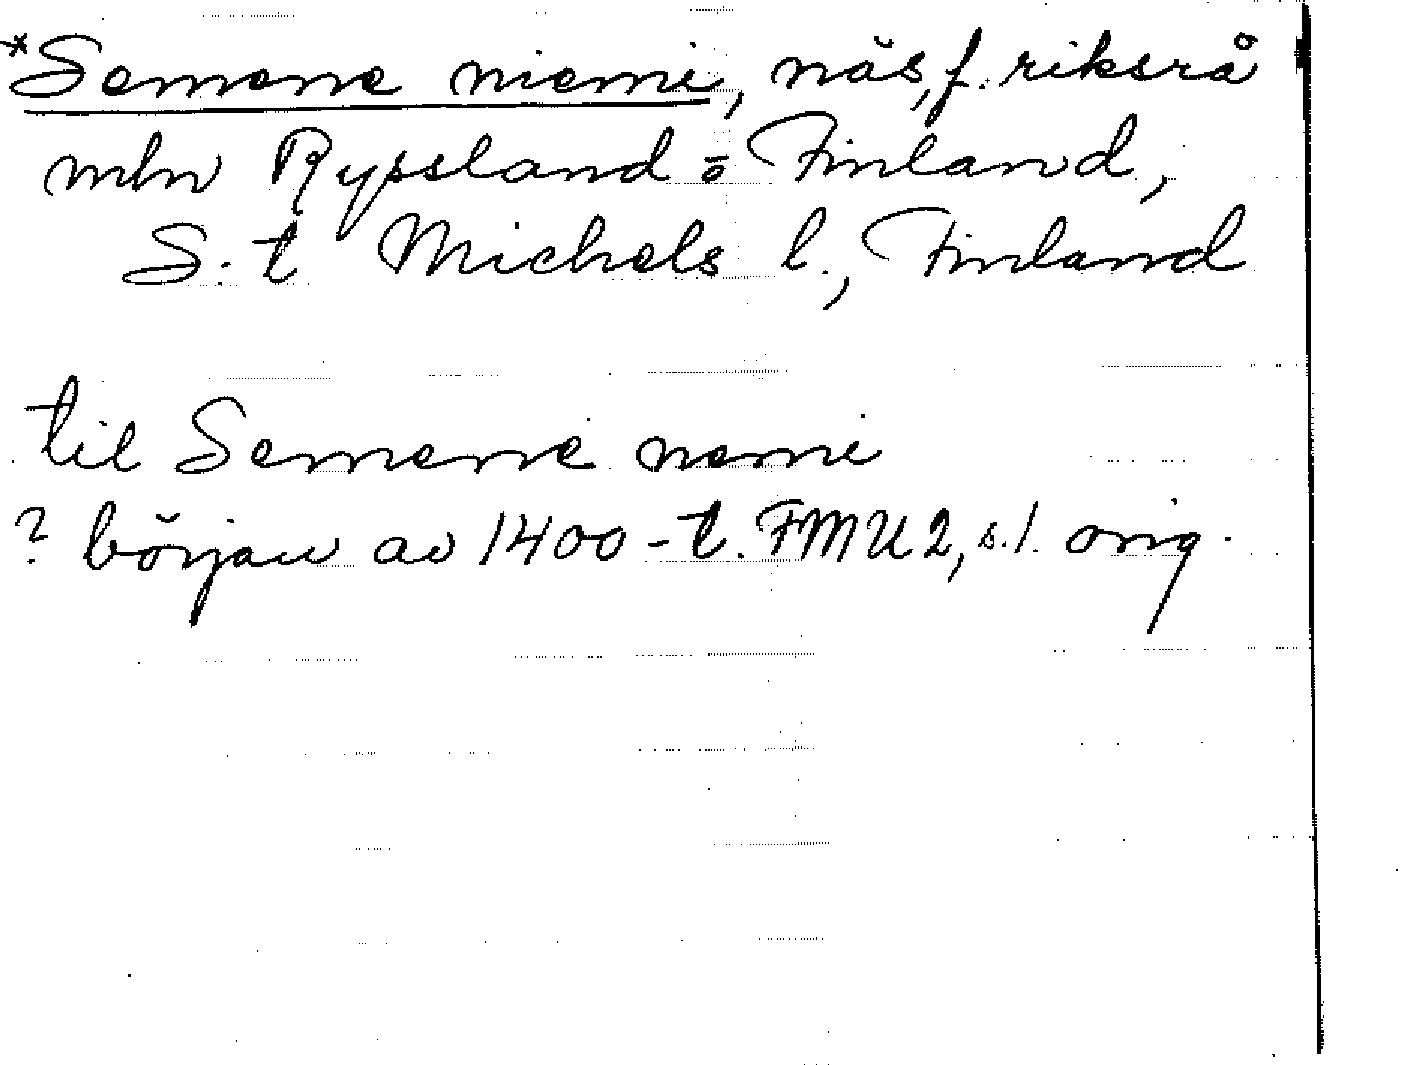 *Semene niemi, näs, f. riksrå
mln Ryssland o Finland,
S:t Michels l., Finland
til Semene nemi
? början av 1400-t. FMU 2, s. 1. orig.